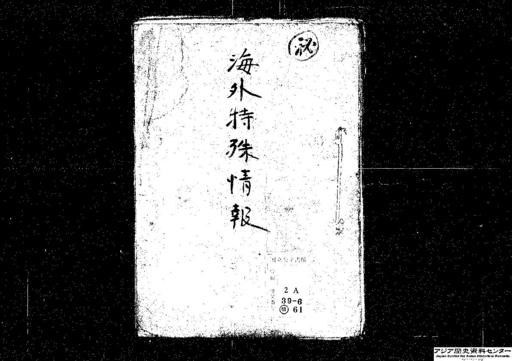 秘
海外特殊情報
国立公文書館
2A
39-6
61
アジア歴史資料センター
Japan Center for Asian Historical Records